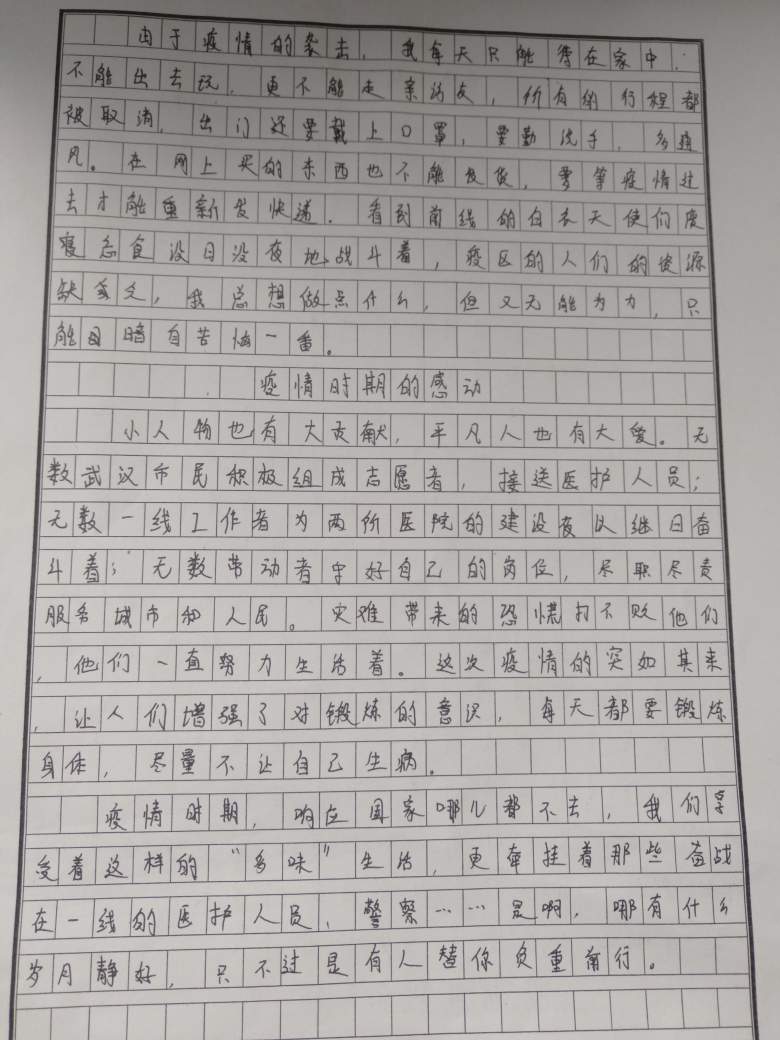 由于疫情的袭击，我每天只能待在家中，
不能出去玩，更不能走亲访友，所有的行程都
被取消，出门还要戴上口罩，要勤洗手，多通
风。在网上买的东西也不能发货，要等疫情过
去才能重新发快递。看到前线的白衣天使们废
寝忘食没日没夜地战斗着，疫区的人们的资源
缺乏，我总想做点什么，但又无能为力，只
能暗自苦恼一番。
疫情时期的感动
小人物也有大贡献，平凡人也有大爱。无
数武汉市民积极组成志愿者，接送医护人员；
无数一线工作者为两所医院的建设夜以继日奋
斗着；无数劳动者守好自己的岗位，尽职尽责
服务城市和人民。灾难带来的恐慌打不败他们
，他们一直努力生活着。这次疫情的突如其来
，让人们增强了对锻炼的意识，每天都要锻炼
身体，尽量不让自己生病。
疫情时期，响应国家哪儿都不去，我们享
受着这样的“多味”生活，更牵挂着那些奋战
在一线的医护人员、警察……是啊，哪有什么
岁月静好，只不过是有人替你负重前行。